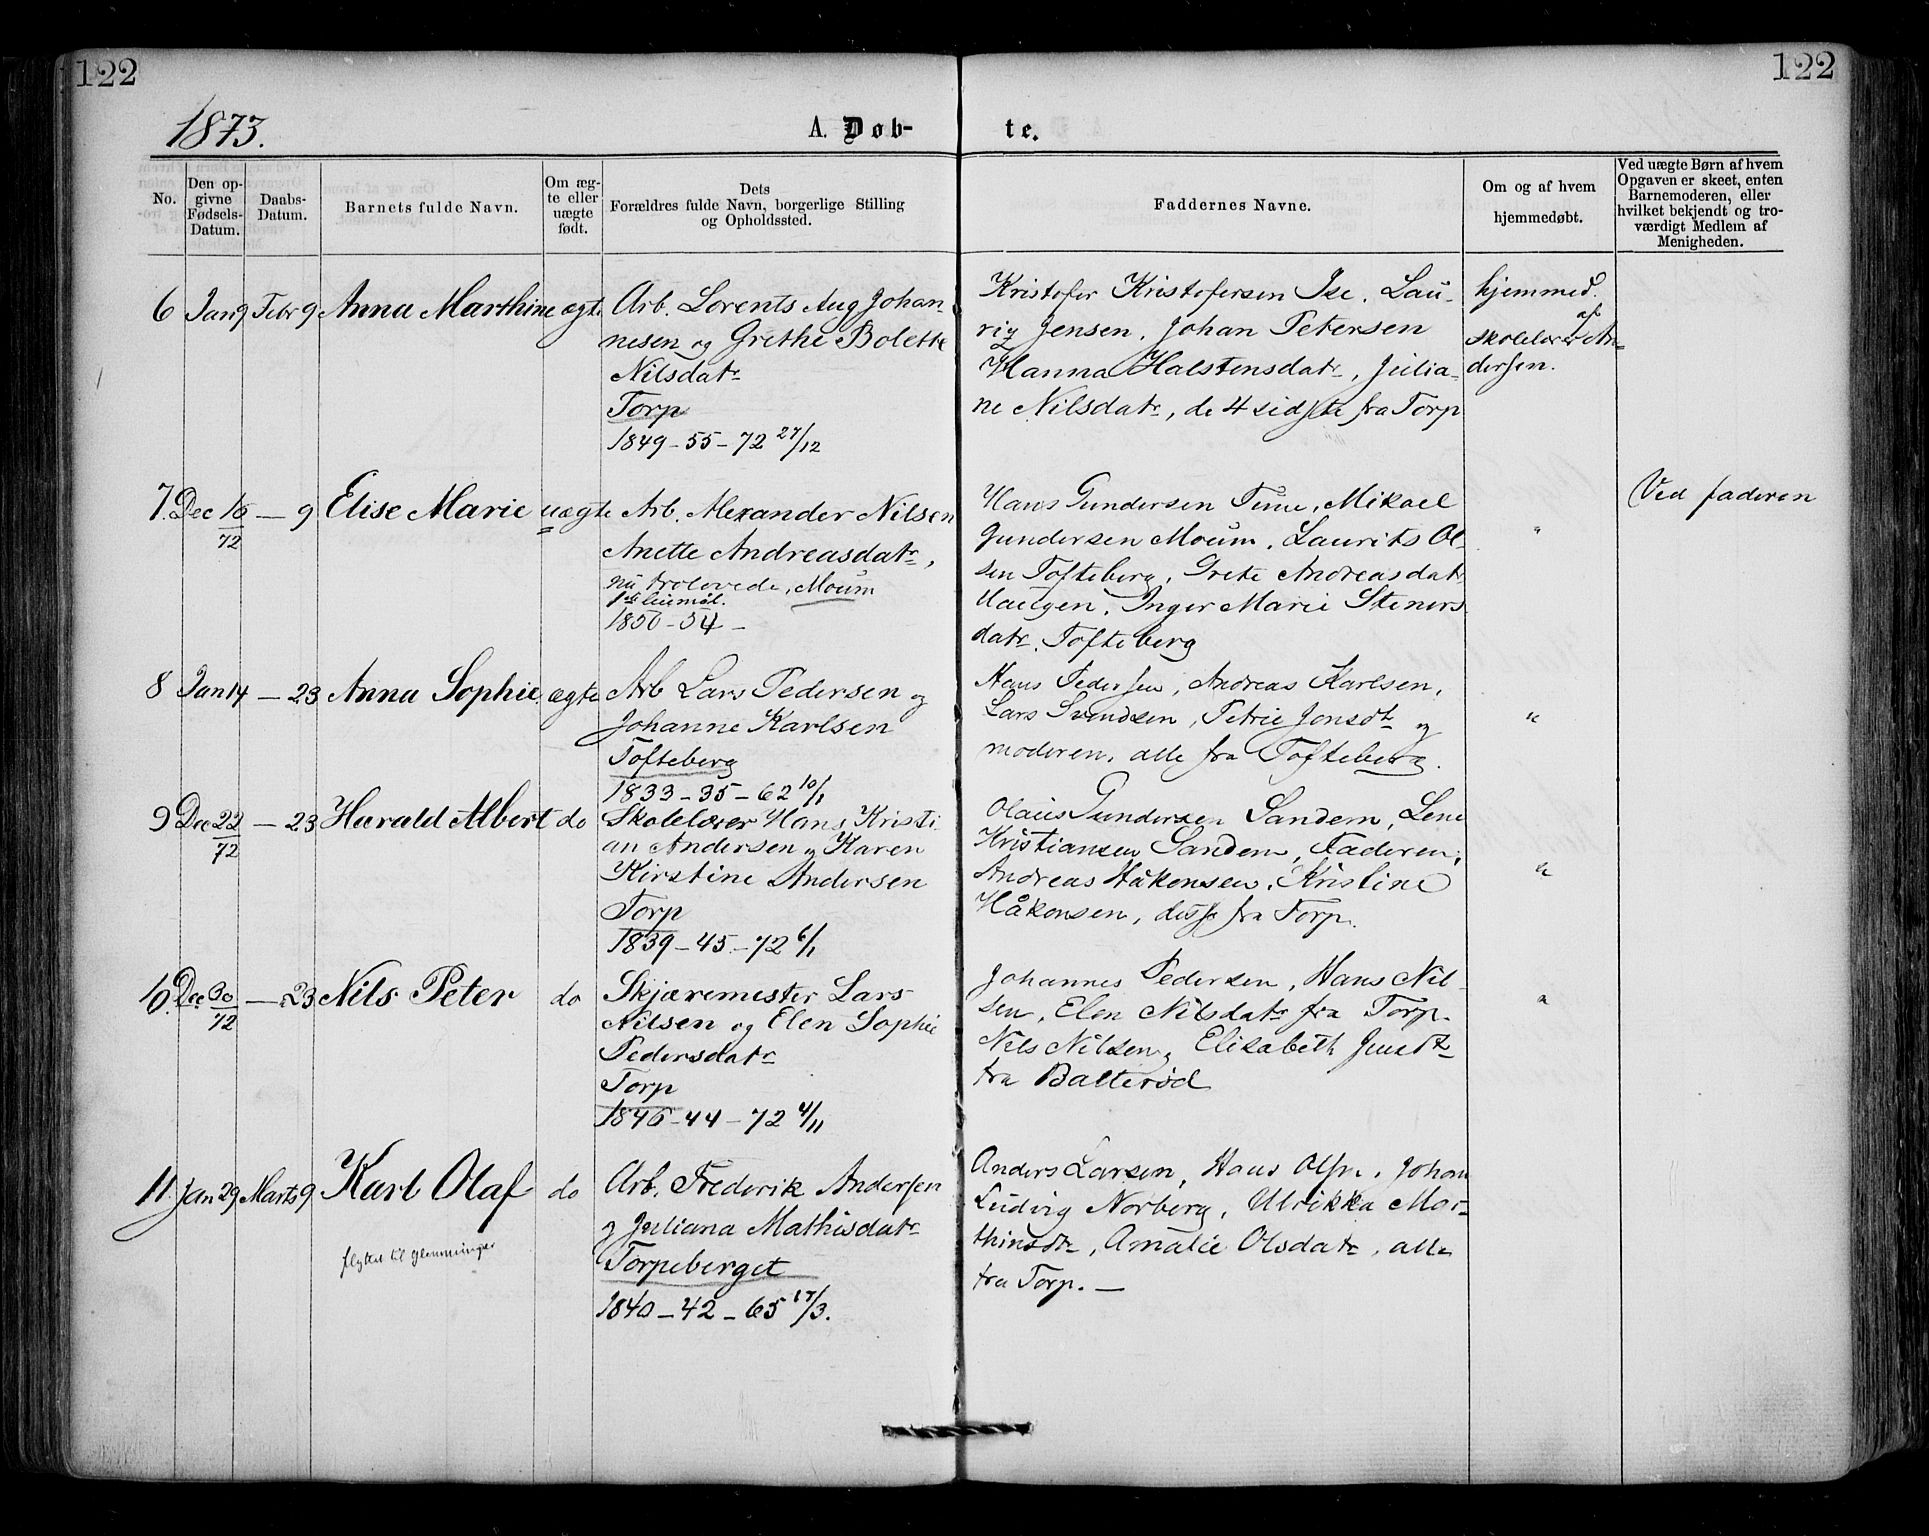 122
122
1873.
A. Døb-
te.
No.
Den op-
givne
Fødsels-
Datum.
Daabs-
Datum.
Barnets fulde Navn.
Om æg-
te eller
uægte
født.
Dets
Forældres fulde Navn, borgerlige Stilling
og Opholdssted.
Faddernes Navne.
Om og af hvem
hjemmedøbt.
Ved uægte Børn af hvem
Opgaven er skeet, enten
Barnemoderen, eller
hvilket bekjendt og tro-
værdigt Medlem af
Menigheden.
6 Jan 9 Febr 9 Anna Marthine ægte
Arb. Lorents Aug Johan-
nesen og Grethe Bolette
Nilsdatr
Torp
1849 - 55 - 72 27/12
Kristofer Kristofersen Ise, Lau-
rig Jensen, Johan Petersen
Hanna Halstensdatr, Julia-
ne Nilsdatr, de 4 sidste fra Torp
hjemmed.
af
skolelærer An-
dersen.
7. Dec 16/72 — 9 Elise Marie uægte
Arb. Alexander Nilsen
Anette Andreasdatr,
nu trolovede, Moum
1ste leiermål.
1850 - 54 -
Hans Gundersen Tune, Mikael
Gundersen Moum, Laurits Ol-
sen Tofteberg, Grete Andreasdatr
Haugen, Inger Marie Steners
datr. Tofteberg
"
Ved faderen
8 Jan 14 — 23 Anna Sophie ægte
Arb Lars Pedersen og
Johanne Karlsen
Tofteberg
1833 - 35 - 62 10/1
Hans Pedersen, Andreas Karlsen,
Lars Svendsen, Petrie Jonsdt og
moderen, alle fra Tofteberg.
"
9 Dec 22/72 — 23 Harald Albert do
Skolelærer Hans Kristi-
an Andersen og Karen
Kirstine Andersen
Torp
1839 - 45 - 72 6/1
Olaus Gundersen Sandem, Lene
Kristiansen Sandem, Faderen,
Andreas Håkonsen, Kristine
Håkonsen, disse fra Torp.
"
10. Dec 30/72 — 23 Nils Peter do
Skjæremester Lars
Nilsen og Elen Sophie
Pedersdatr
Torp
1846 - 44 - 72 4/11
Johannes Pedersen, Hans Nil-
sen, Elen Nilsdatr fra Torp.
Nils Nilsen og Elisabeth Jensdt
fra Balterød
"
11. Jan 29 Marts 9 Karl Olaf do
flyttet til Glemminger
Arb. Frederik Andersen
og Juliana Mathisdatr
Torpeberget
1840 - 42 - 65 17/3.
Anders Larsen, Hans Olsen, Johan
Ludvig Norberg, Ulrikka Mar-
thinsdtr, Amalie Olsdatr, alle
fra Torp. —